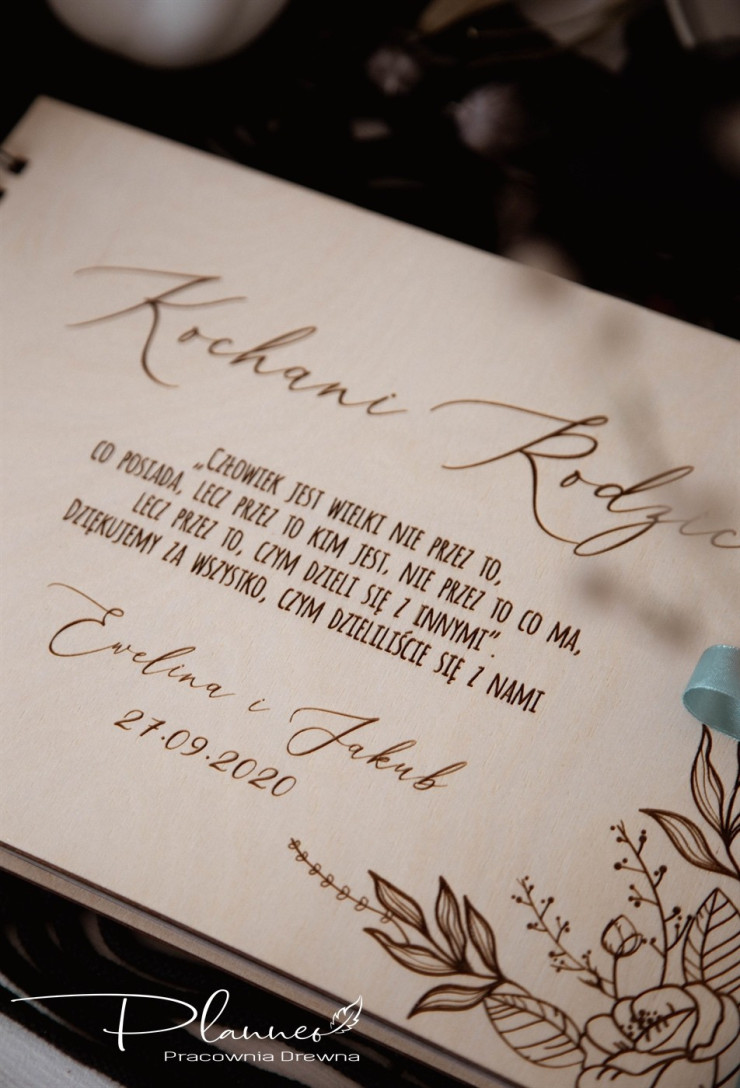 Kochani Rodzic
„Człowiek jest wielki nie przez to,
co posiada, lecz przez to kim jest, nie przez to co ma,
lecz przez to, czym dzieli się z innymi”.
Dziękujemy za wszystko, czym dzieliliście się z nami
Ewelina i Jakub
27.09.2020
Planneo
Pracownia Drewna